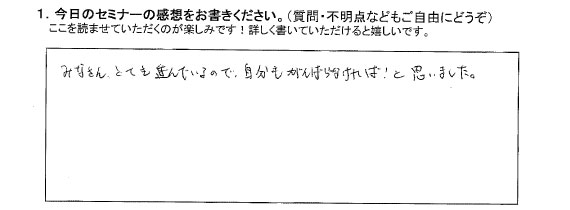 1. 今日のセミナーの感想をお書きください。（質問・不明点などもご自由にどうぞ）
ここを読ませていただくのが楽しみです！詳しく書いていただけると嬉しいです。
みなさん、とても進んでいるので、自分もがんばらなければ！と思いました。